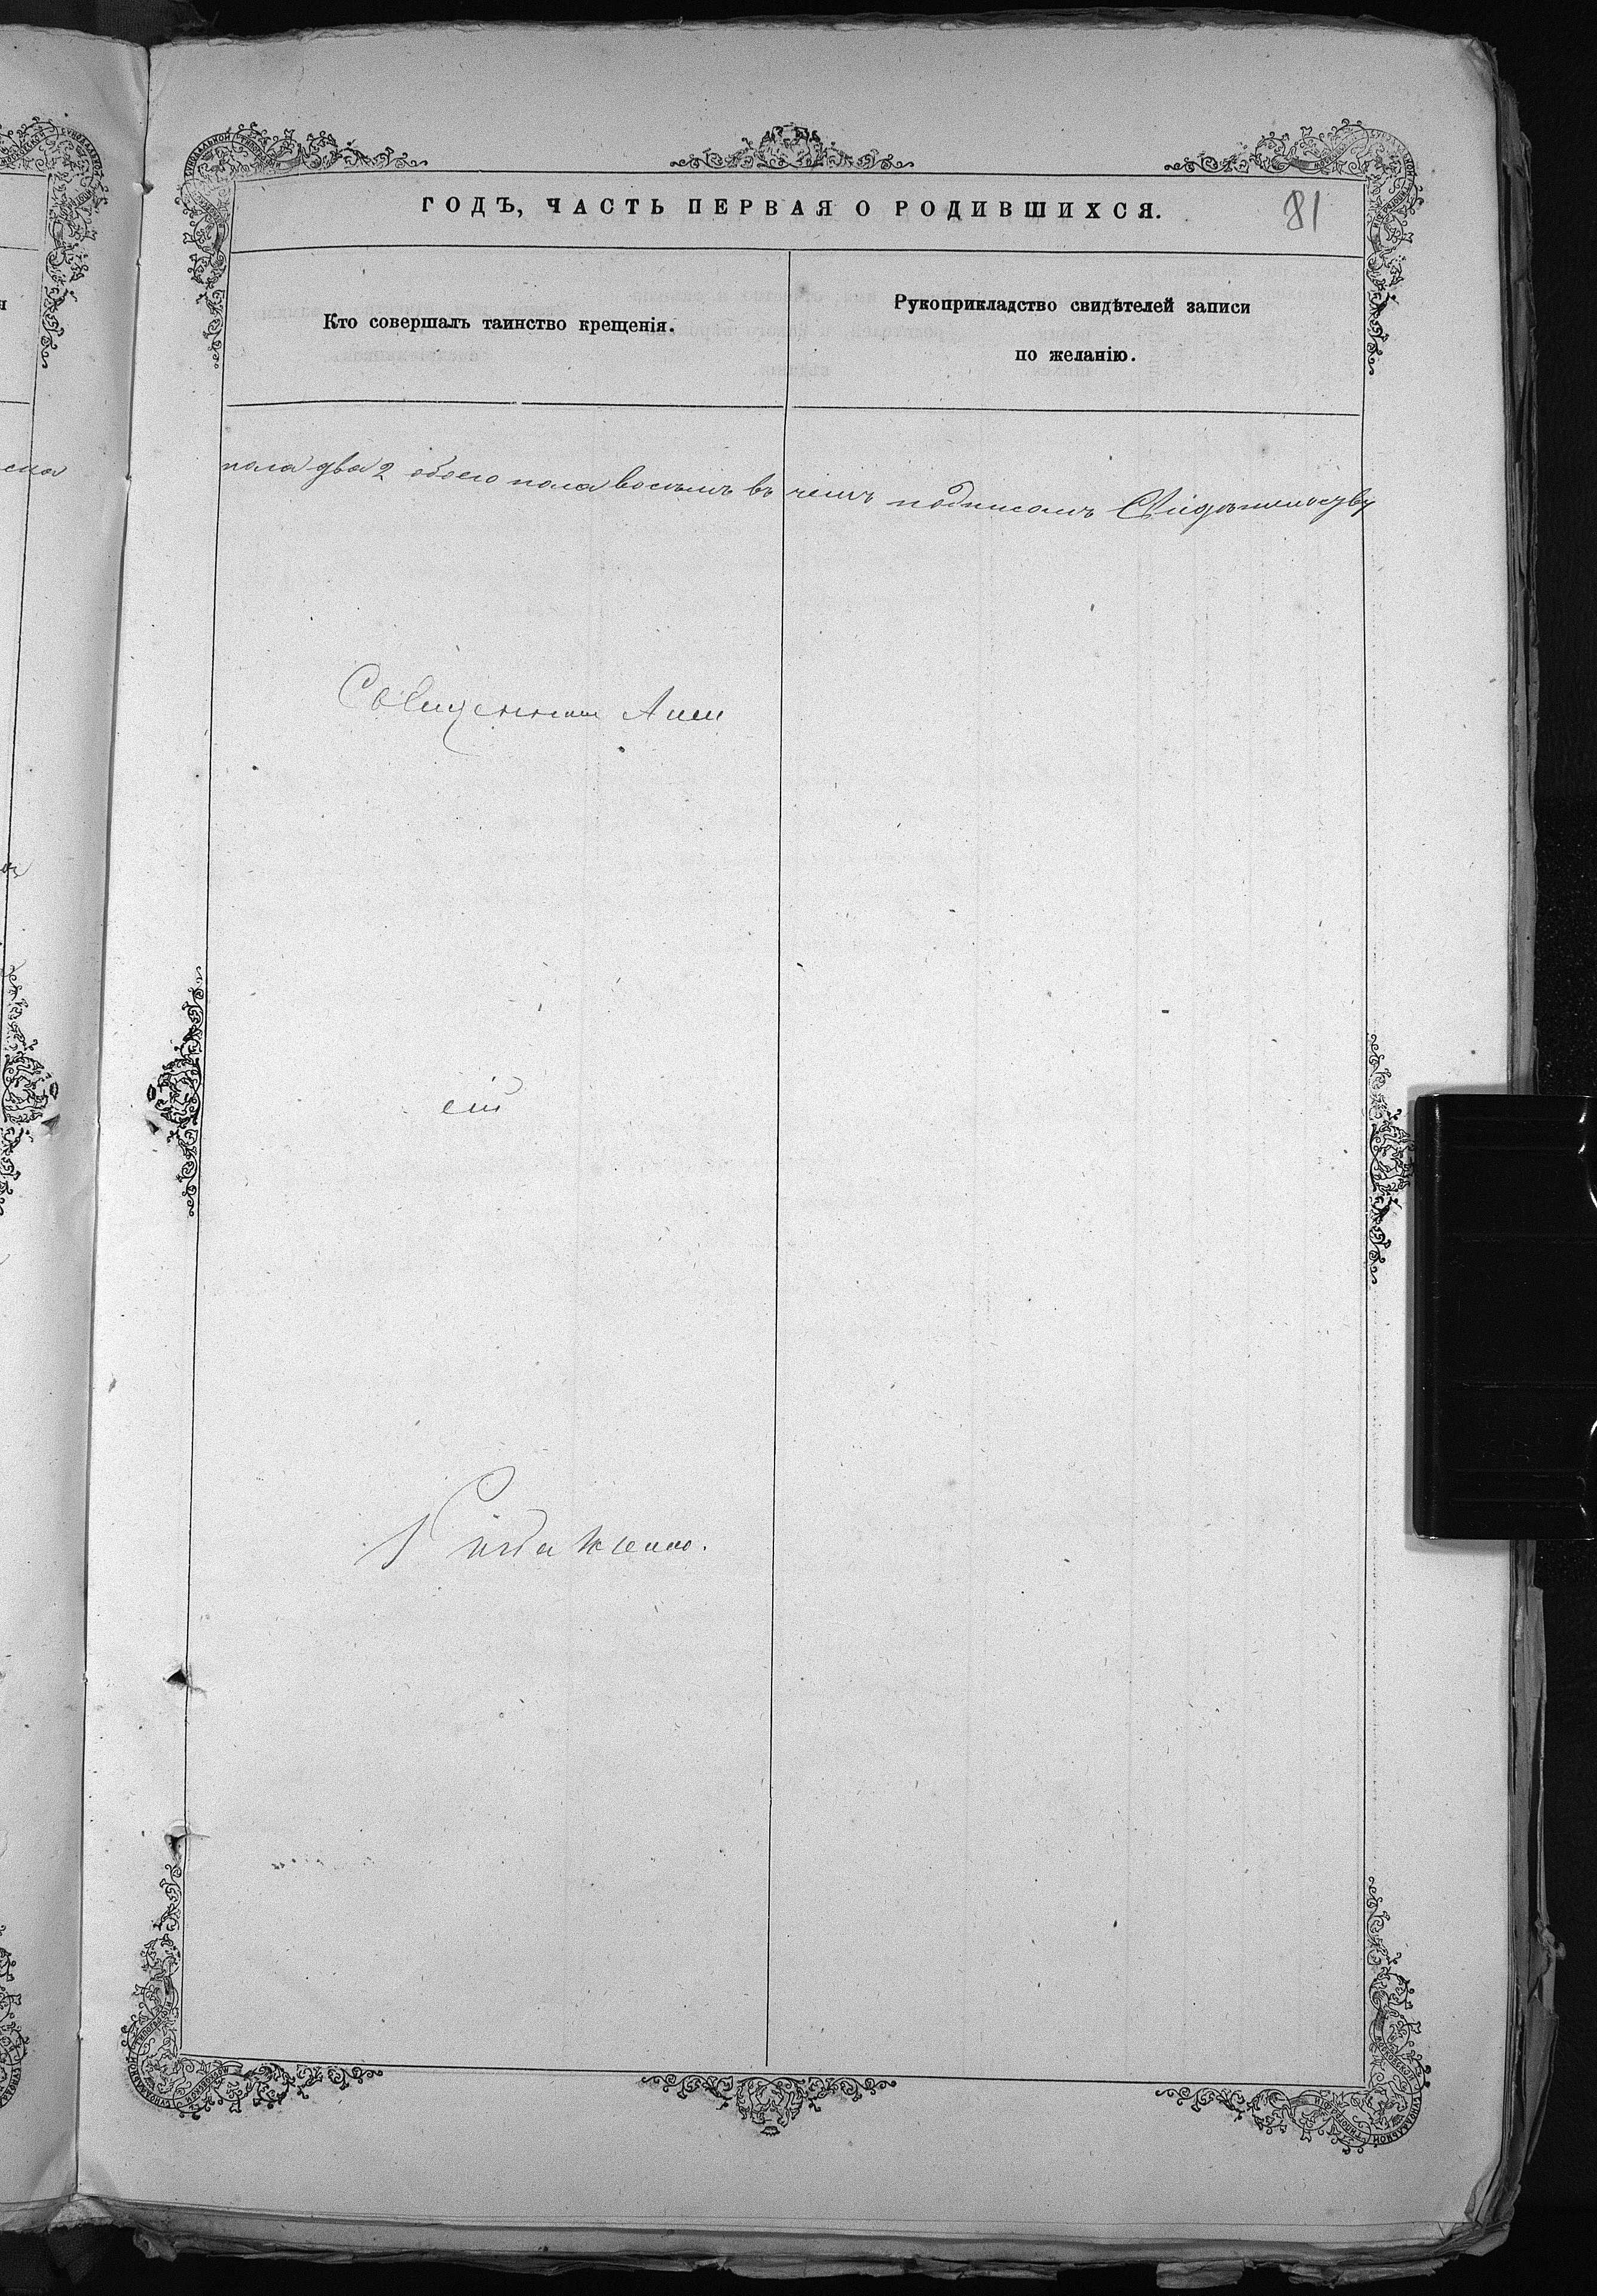 ГОДЪ, ЧАСТЬ ПЕРВАЯ О РОДИВШИХСЯ.
81
Кто совершалъ таинство крещенія.
Рукоприкладство свидѣтелей записи
по желанію.
пола два 2 обоего пола восемь въ чемъ подписомъ Свидѣтельству
Священник